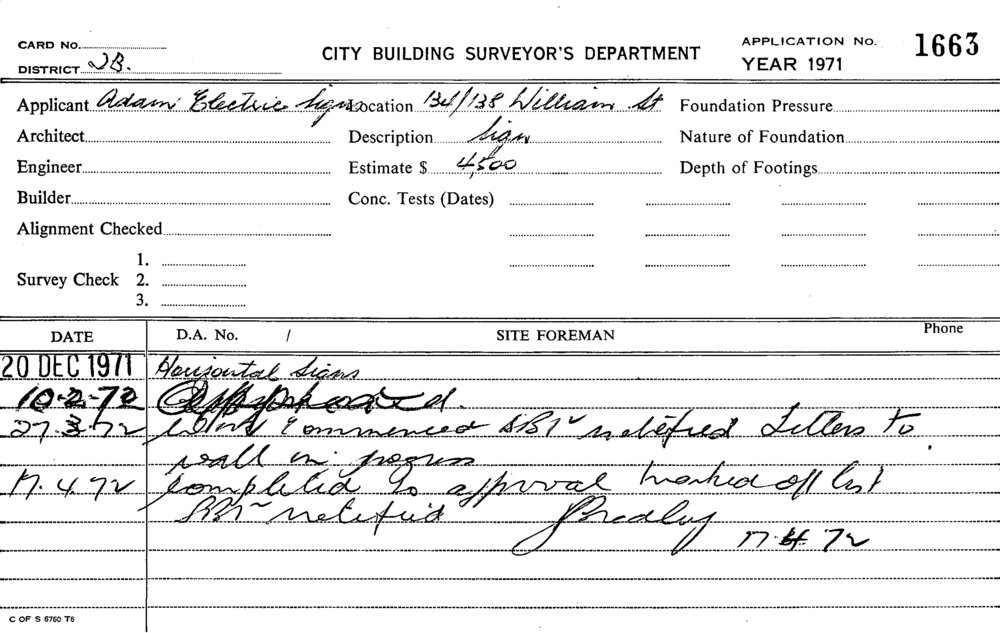 CARD No. CITY BUILDING SURVEYOR'S DEPARTMENT APPLICATION No. 1663
DISTRICT 2B. YEAR 1971
Applicant Adam Electric Signs Location 134/138 William St Foundation Pressure
Architect Description Sign Nature of Foundation
Engineer Estimate $ 4,500 Depth of Footings
Builder Conc. Tests (Dates)
Alignment Checked
1.
Survey Check 2.
3.
DATE D.A. No. / SITE FOREMAN Phone
20 DEC 1971 Horizontal Signs
10-2-72 Approved.
27.3.72 Work Commenced notified Letters to
wall in progress
17.4.72 Completed to approval marked off list
notified 17.4.72
C OF S 6760 T6